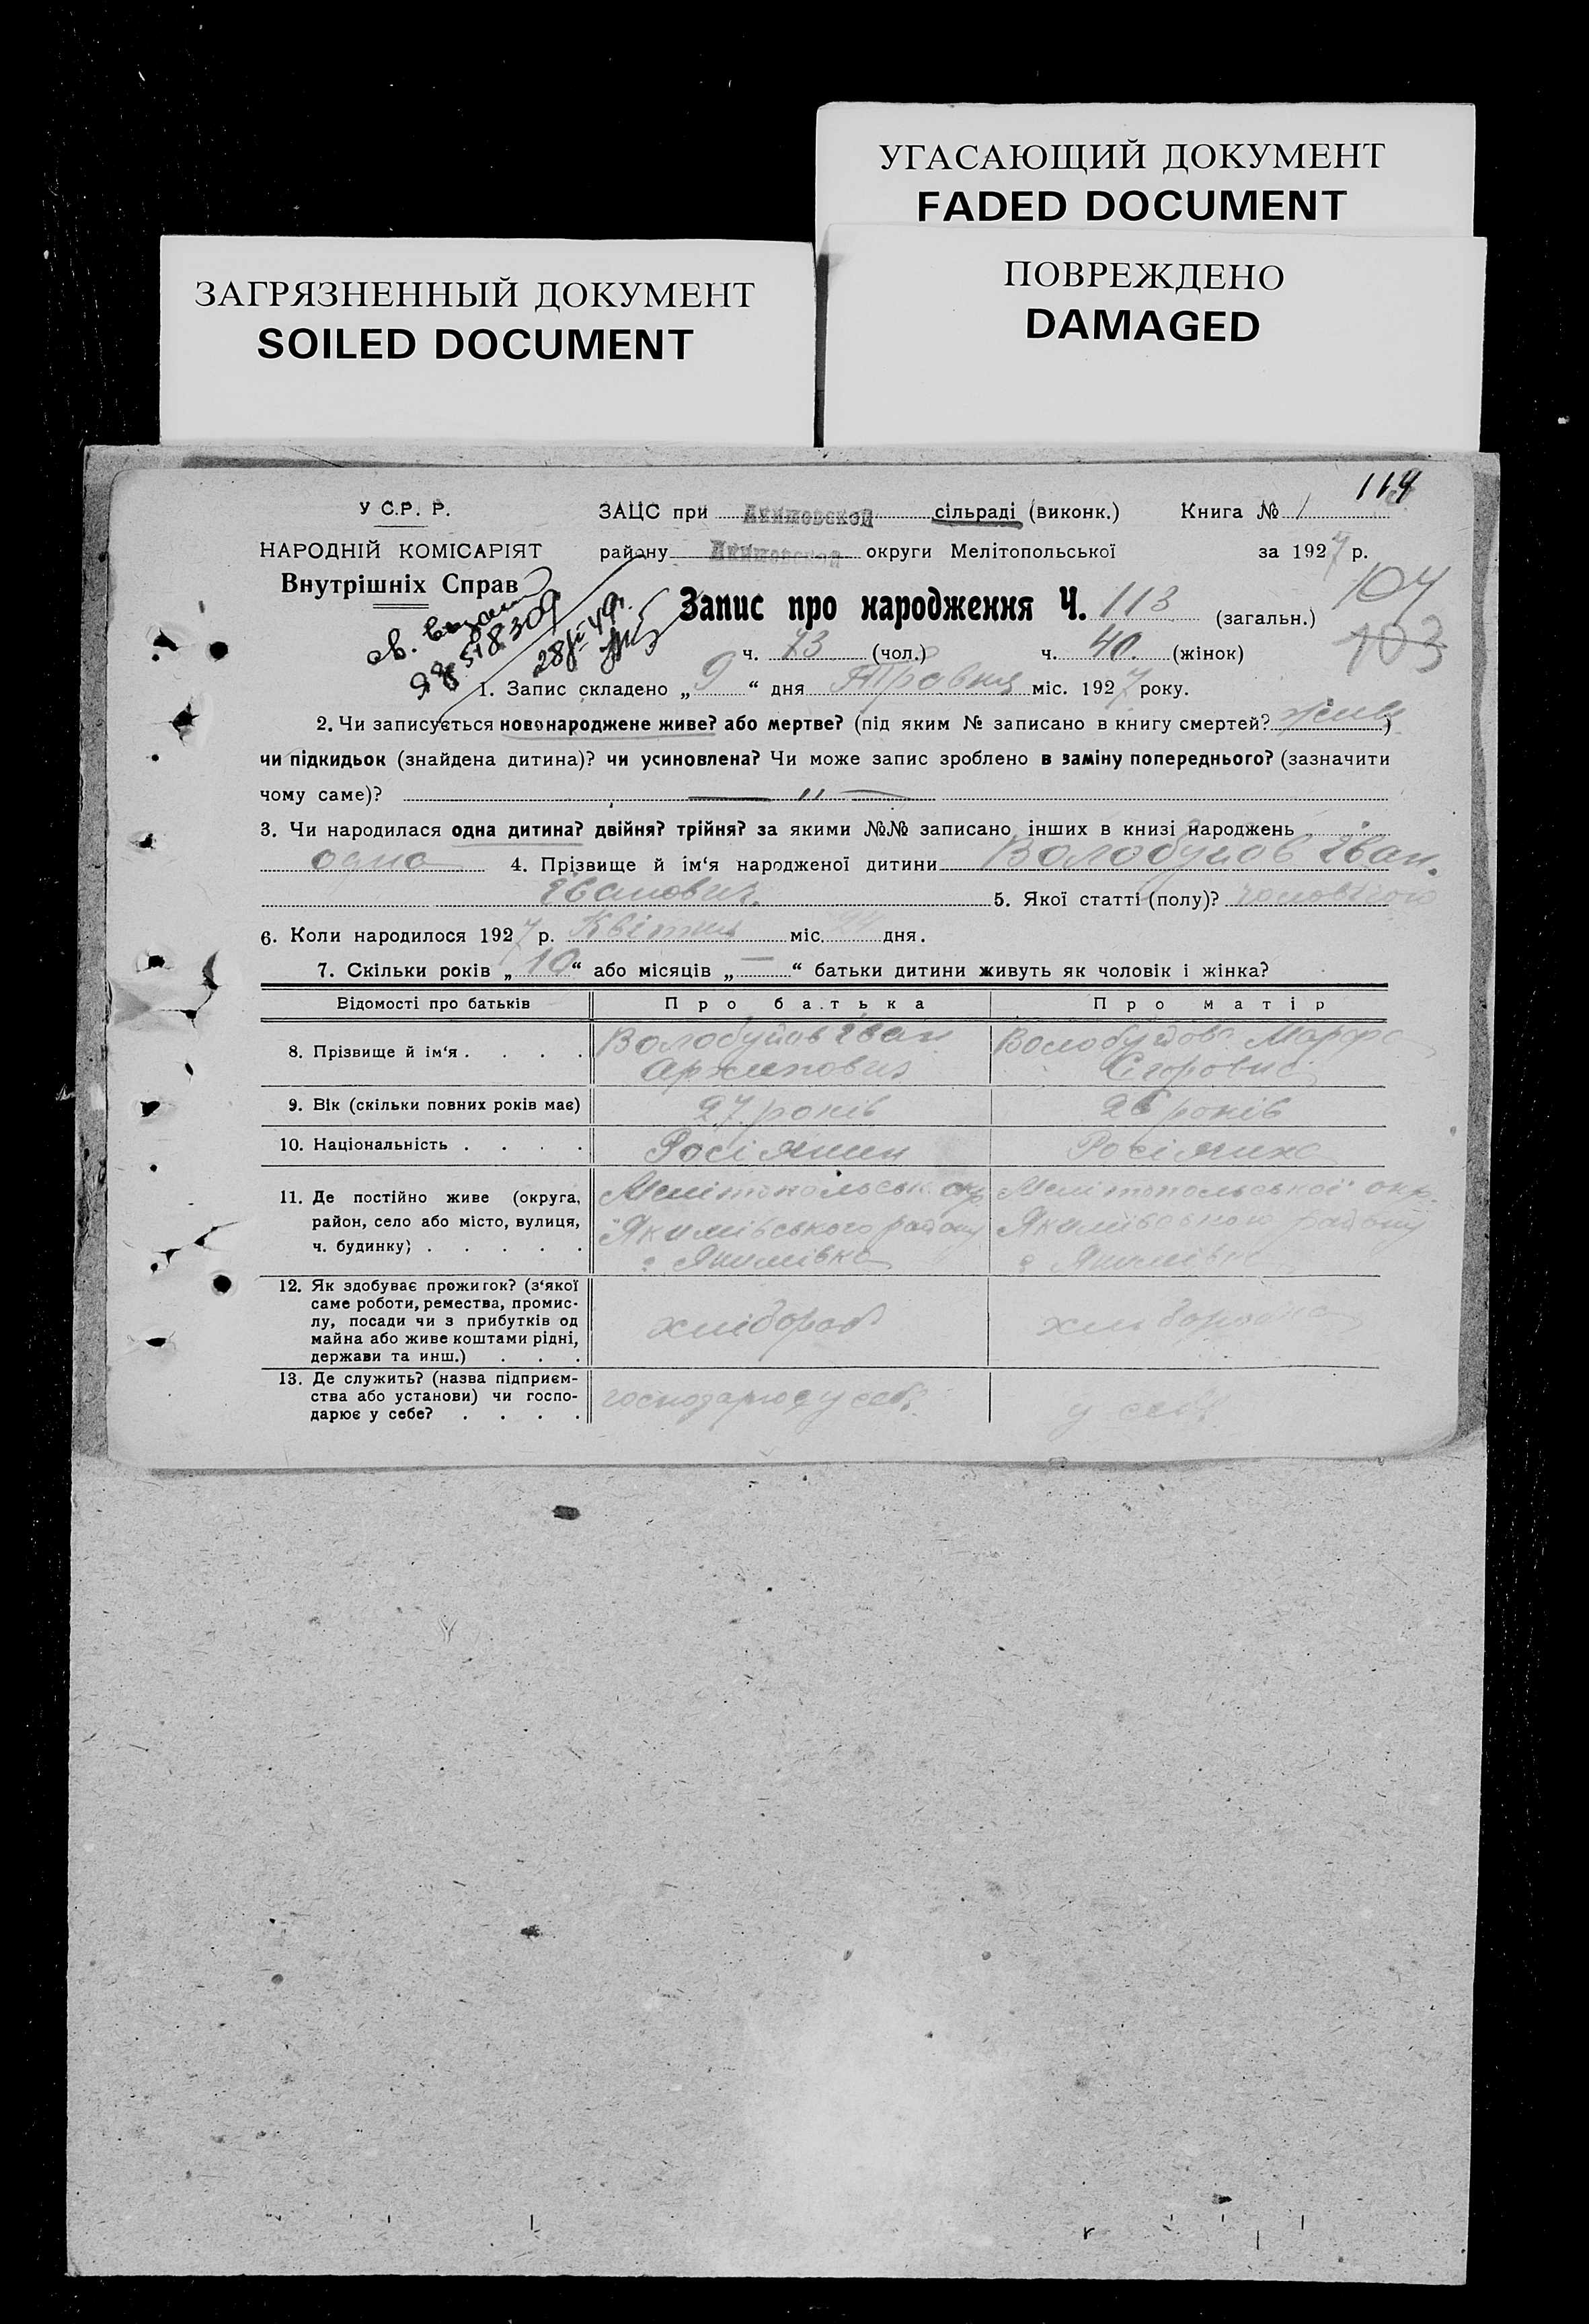 УГАСАЮЩИЙ ДОКУМЕНТ
FADED DOCUMENT
ПОВРЕЖДЕНО
DAMAGED
ЗАГРЯЗНЕННЫЙ ДОКУМЕНТ
SOILED DOCUMENT
У С.Р. Р.
НАРОДНІЙ КОМІСАРІЯТ
Внутрішніх Справ
ЗАЦС при Акимовской сільраді (виконк.) Книга № 1
району Акимовской округи Мелітопольської за 1927 р.
Запис про народження Ч. 113 (загальн.)
104
103
ч. 73 (чол.) ч. 40. (жінок)
1. Запис складено „ 9 “ дня Травня міс. 1927 року.
2. Чи записується новонароджене живе? або мертве? (під яким № записано в книгу смертей? живе)
чи підкидьок (знайдена дитина)? чи усиновлена? Чи може запис зроблено в заміну попереднього? (зазначити
чому саме)? — " —
3. Чи народилася одна дитина? двійня? трійня? за якими №№ записано інших в книзі народжень
одна 4. Прізвище й ім‘я народженої дитини Волобуйов Іван.
Іванович. 5. Якої статті (полу)? чоловічою
6. Коли народилося 1927 р. Квітня міс. 24 дня.
7. Скільки років „ 10 “ або місяців „ — “ батьки дитини живуть як чоловік і жінка?
Відомості про батьків Про батька Про матір
8. Прізвище й ім‘я . . . . Волобуйов Іван Архипович Волобуйова Марфа Єгоровна
9. Вік (скільки повних років має) 27 років 26 років
10. Національність . . . . Росіянин Росіянка
11. Де постійно живе (округа,
район, село або місто, вулиця,
ч. будинку) . . . . .
Мелітопольськ. окр.
Якимівського району
с. Якимівка
Мелітопольської окр.
Якимівського району
с. Якимівка
12. Як здобуває прожиток? (з‘якої
саме роботи, ремества, промис-
лу, посади чи з прибутків од
майна або живе коштами рідні,
держави та инш.) . . .
хлібороб
хліборобка
13. Де служить? (назва підприєм-
ства або установи) чи госпо-
дарює у себе? . . . .
господарює у себе.
у себе.